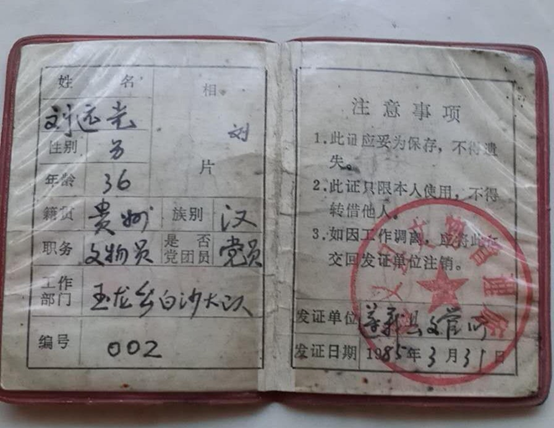 姓 名 相
刘远光 刘
性别 男
年龄 36 片
籍贯 贵州 族别 汉
职务 文物员 是否党团员 党员
工作部门 玉龙乡白沙大队
编号 002
注意事项
1.此证应妥为保存，不得遗
失。
2.此证只限本人使用，不得
转借他人。
3.如因工作调离，应将此证
交回发证单位注销。
发证单位 县文管所
发证日期 1985年3月31日